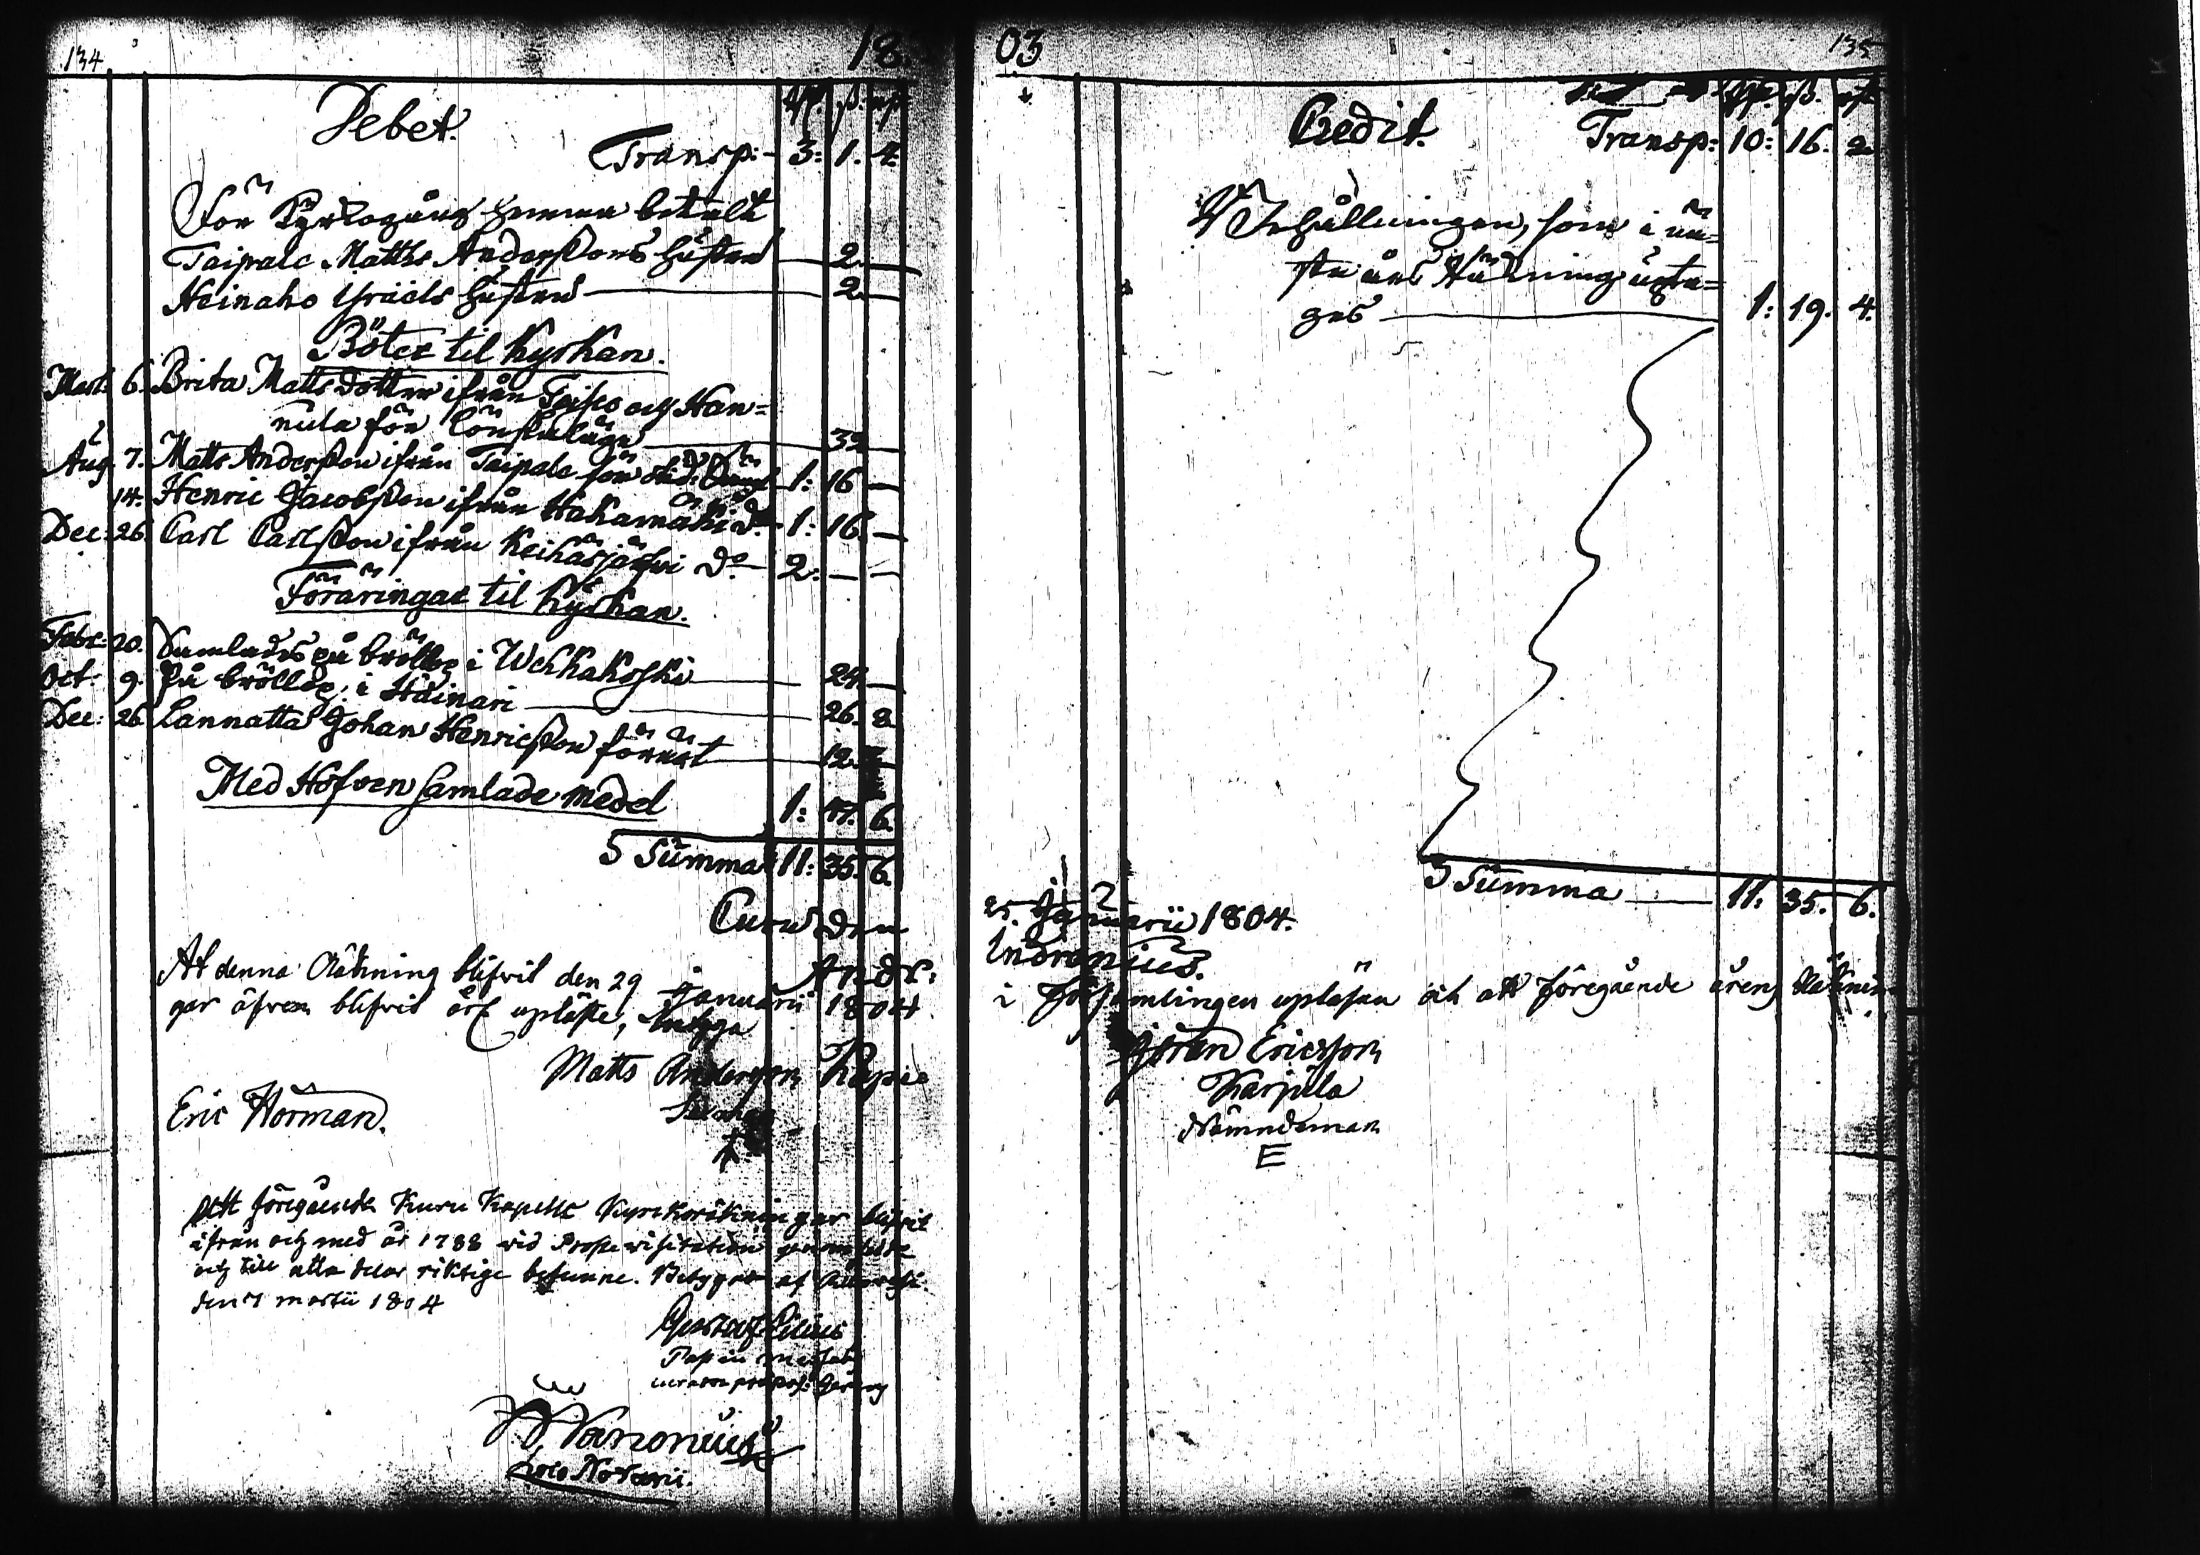 134
18
Debet.
Transp: 3: 1. 4.
För Kyrkogång hemma betalt
Taipale Matths Anderssons hustru 2.
Heinaho Yrjäls hustru 2.
Böter til Kyrkan.
Mart: 6. Brita Matts dotter ifrån Teisco och Han=
nula för lönskaläge 32
Aug. 7. Matts Andersson ifrån Taipale för 1: 16
14. Henric Jacobsson ifrån Hakamäki do 1: 16.
Dec: 26. Carl Carlsson ifrån Keihäsjärfvi do 2.
Föräringar til Kyrkan.
Febr: 20. Samlades på bröllop i Wehkakoski 24
Oct: 9. På bröllop i Häinari 26. 8.
Dec: 26. Lannatta Johan Henricsson förärt 12.
Med Håfven samlade medel 1: 47. 6.
Summa 11: 35. 6.
Curu den
Andr:
At denna Räkning blifvit den 29 Januarii 1804
gar äfven blifvit upläste, betyga
Matts Anderson
Eric Hörman.
Att föregående Kuru Kapells Kyrckoräkningar blifvit
ifrån och med år 1788 vid Proste visitation
och till alla delar riktige befunne. Betygar
den 7 martii 1804
Gustaf
Wanonius
loco Notarii.
03
135
Credit.
Transp: 10: 16. 2.
Behållningen, som i nä=
sta års Räkning upta=
ges 1: 19. 4.
Summa 11: 35. 6.
25. Januarii 1804.
Indrenius.
i församlingen upläsen och att föregående årens Räknin=
Jöran Ericsson
Karjula
Nämndeman
E